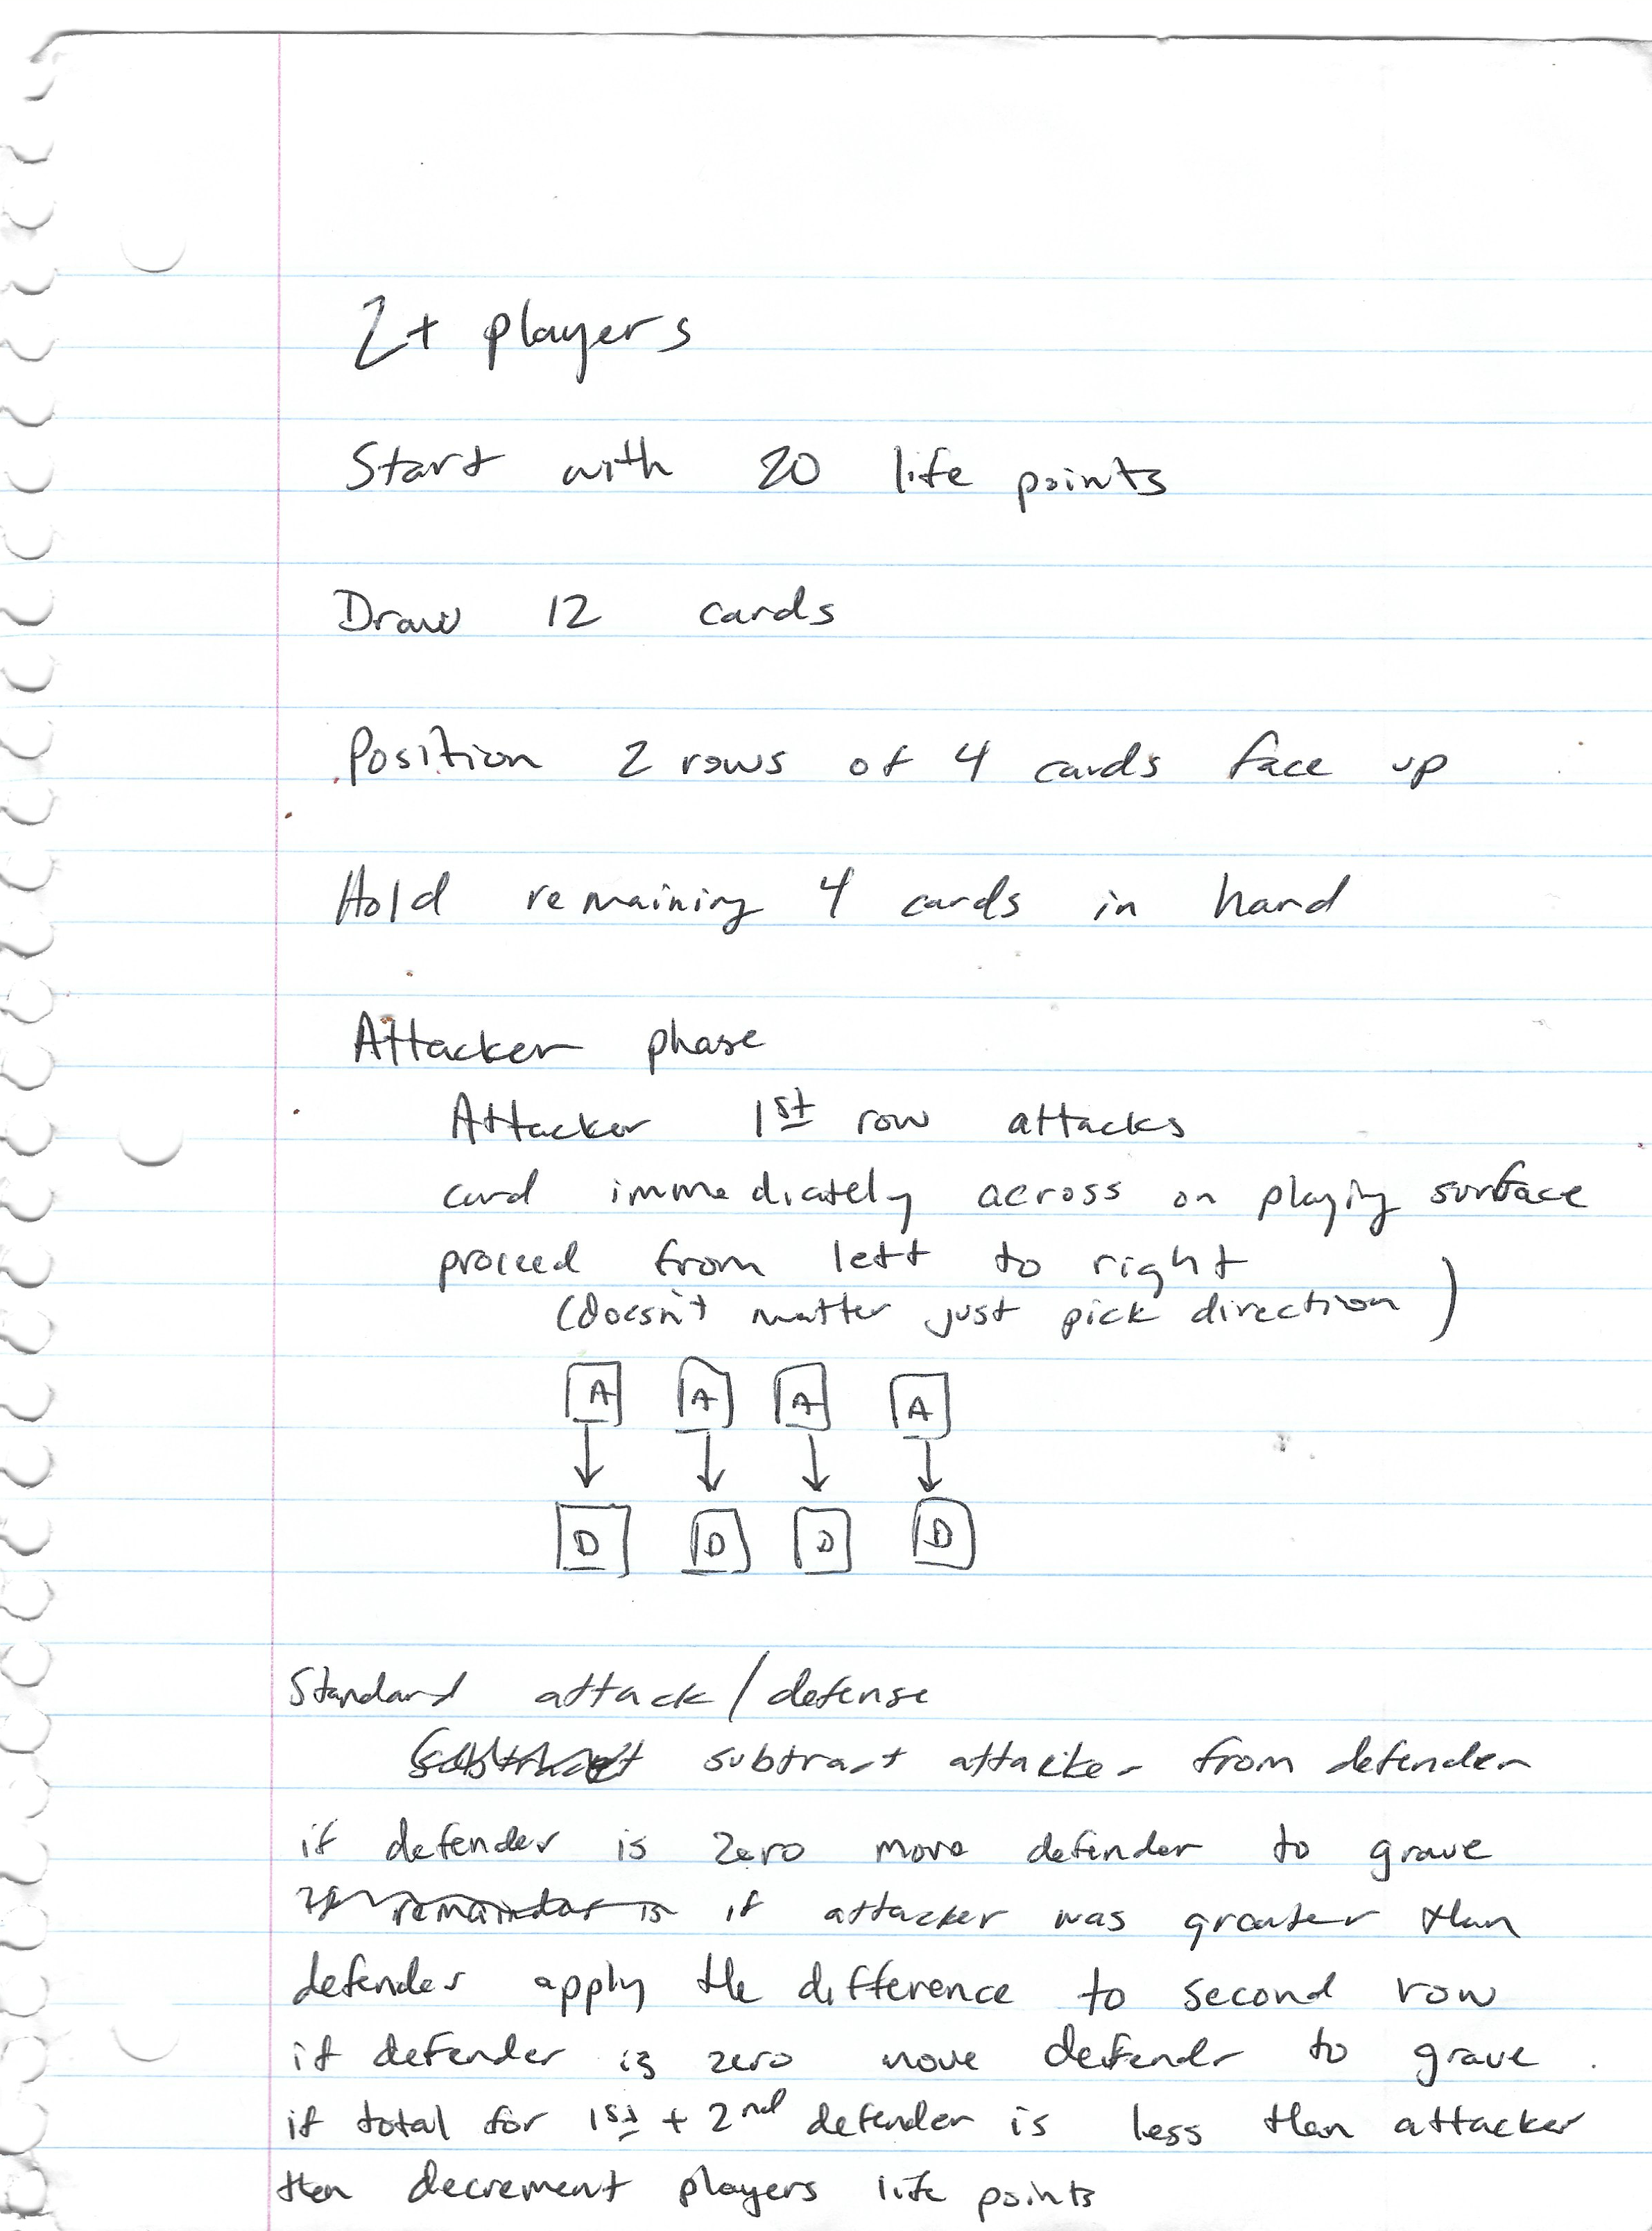 2+ players
Start with 20 life points
Draw 12 cards
Position 2 rows of 4 cards face up
Hold remaining 4 cards in hand
Attacker phase
Attacker 1st row attacks
card immediately across on playing surface
proceed from left to right
(doesn't matter just pick direction)
A A A A
D D D D
Standard attack/defense
subtract subtract attacker from defender
if defender is zero move defender to grave
If remainder is if attacker was greater than
defender apply the difference to second row
if defender is zero move defender to grave.
if total for 1st + 2nd defender is less then attacker
then decrement players life points